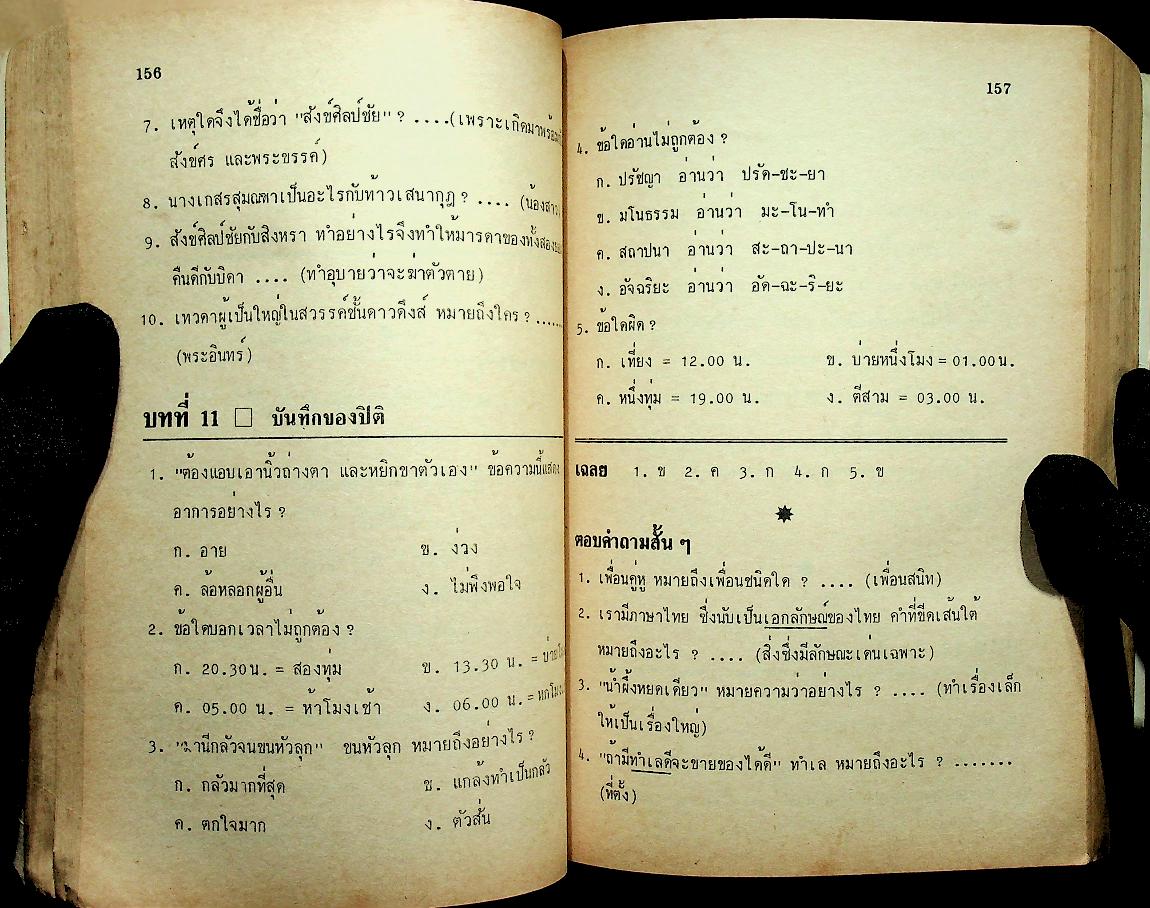 156
7. เหตุใดจึงได้ชื่อว่า "สังข์ศิลป์ชัย" ? ....(เพราะเกิดมาพร้อม
สังข์ศร และพระขรรค์)
8. นางเกสรสุมณฑาเป็นอะไรกับท้าวเสนากุฎ ? .... (น้องสาว
9. สังข์ศิลป์ชัยกับสิงหรา ทำอย่างไรจึงทำให้มารดาของทั้งสอง
คืนดีกับบิดา .... (ทำอุบายว่าจะฆ่าตัวตาย)
10. เทวดาผู้เป็นใหญ่ในสวรรค์ชั้นดาวดึงส์ หมายถึงใคร ? ......
(พระอินทร์)
บทที่ 11 □ บันทึกของปิติ
1. "ต้องแอบเอานิ้วถ่างตา และหยิกขาตัวเอง" ข้อความนี้แสดง
อาการอย่างไร ?
ก. อาย ข. ง่วง
ค. ล้อหลอกผู้อื่น ง. ไม่พึงพอใจ
2. ข้อใดบอกเวลาไม่ถูกต้อง ?
ก. 20.30น. = สองทุ่ม ข. 13.30 น. = บ่าย
ค. 05.00 น. = ห้าโมงเช้า ง. 06.00 น. = หกโมง
3. "มานีกลัวจนขนหัวลุก" ขนหัวลุก หมายถึงอย่างไร ?
ก. กลัวมากที่สุด ข. แกล้งทำเป็นกลัว
ค. ตกใจมาก ง. ตัวสั่น
157
4. ข้อใดอ่านไม่ถูกต้อง ?
ก. ปรัชญา อ่านว่า ปรัด-ชะ-ยา
ข. มโนธรรม อ่านว่า มะ-โน-ทำ
ค. สถาปนา อ่านว่า สะ-ถา-ปะ-นา
ง. อัจฉริยะ อ่านว่า อัด-ฉะ-ริ-ยะ
5. ข้อใดผิด ?
ก. เที่ยง = 12.00 น. ข. บ่ายหนึ่งโมง = 01.00น.
ค. หนึ่งทุ่ม = 19.00 น. ง. ตีสาม = 03.00 น.
เฉลย 1. ข 2. ค 3. ก 4. ก 5. ข
ตอบคำถามสั้น ๆ
1. เพื่อนคู่หู หมายถึงเพื่อนชนิดใด ? .... (เพื่อนสนิท)
2. เรามีภาษาไทย ซึ่งนับเป็นเอกลักษณ์ของไทย คำที่ขีดเส้นใต้
หมายถึงอะไร ? .... (สิ่งซึ่งมีลักษณะเด่นเฉพาะ)
3. "น้ำผึ้งหยดเดียว" หมายความว่าอย่างไร ? .... (ทำเรื่องเล็ก
ให้เป็นเรื่องใหญ่)
4. "ถ้ามีทำเลดีจะขายของได้ดี" ทำเล หมายถึงอะไร ? .......
(ที่ตั้ง)